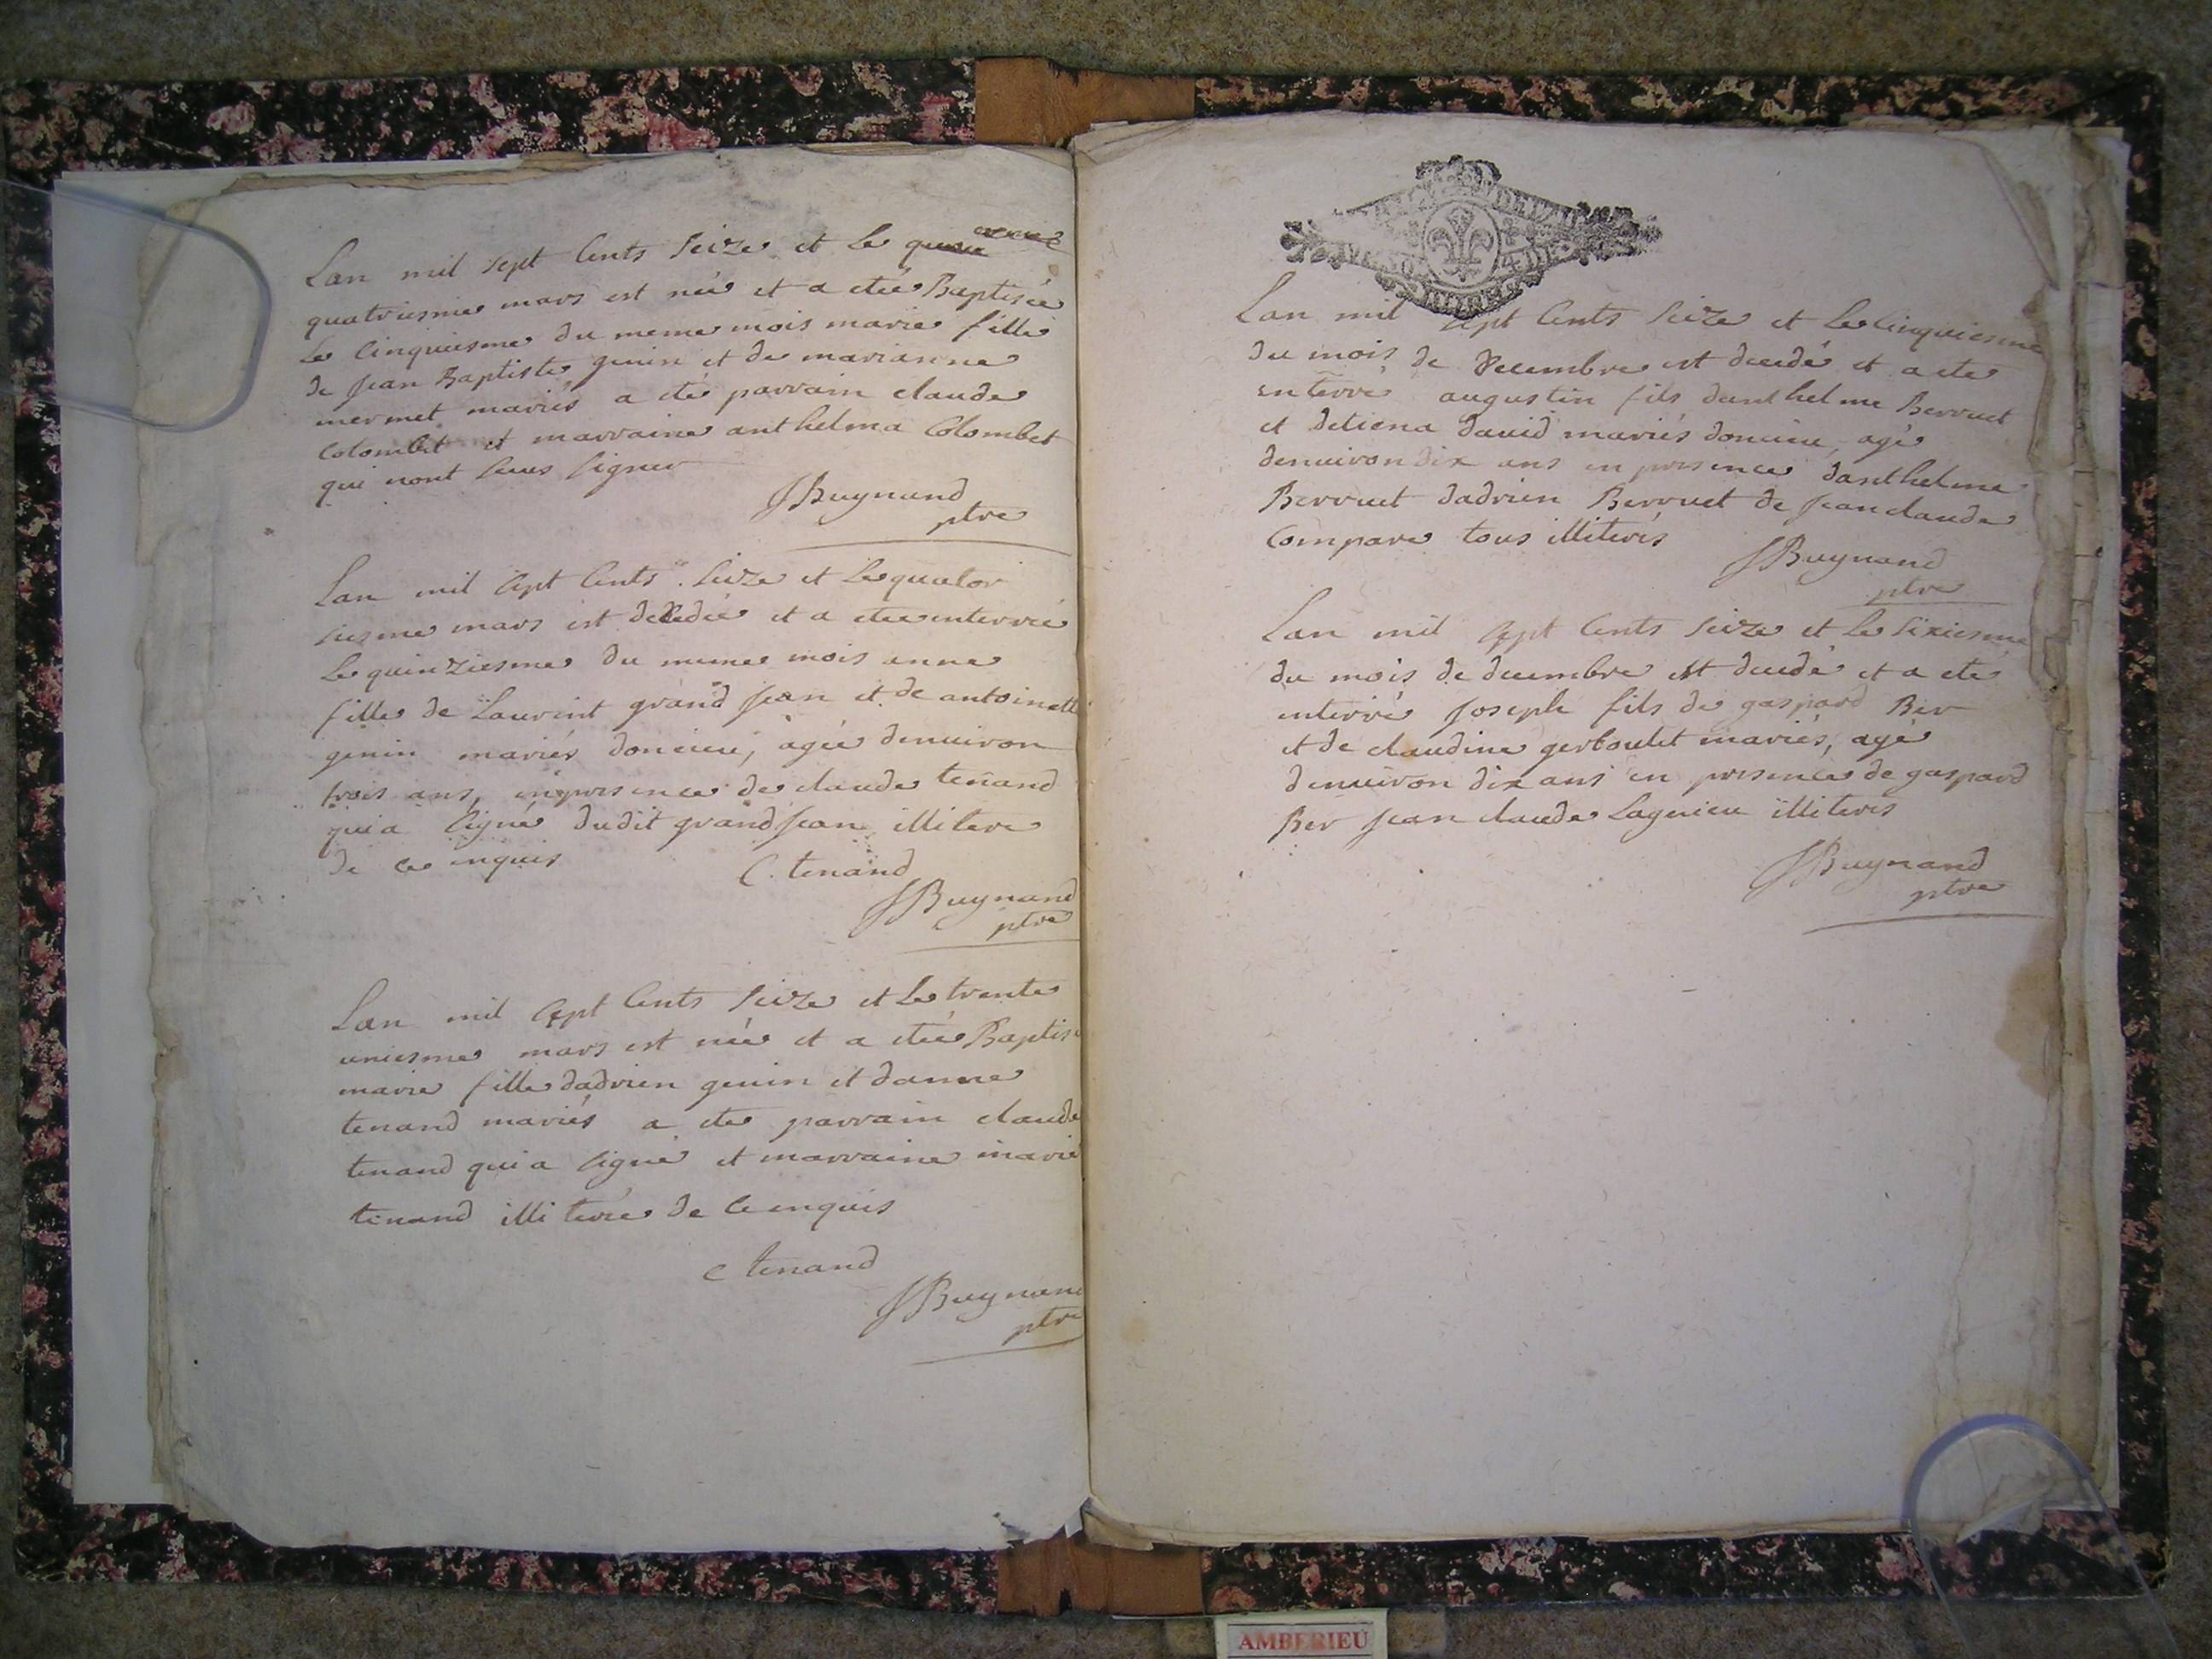 Lan mil sept Cents Seize et Le
quatriesme mars est née et a etée Baptisée
Le Cinquiesme du meme mois marie fille
de Jean Baptiste genin et de marianne
mermet mariés a eté parrain claude
Colombet et marraine anthelma Colombet
qui nont sceus signer
JBuynand
ptre
Lan mil sept Cents Seize et Le quator
siesme mars est decedée et a etee enterrée
Le quinziesme du meme mois anne
fille de Laurent grand Jean et de antoinette
genin mariés doncieu, agée denuiron
trois ans, en presence de claude tenand
qui a signé dudit grand Jean illitere
de ce enquis
C. tenand
JBuynand
ptre
Lan mil sept Cents Seize et Le trente
uniesme mars est née et a etée Baptisé
marie fille dadrien genin et danne
tenand mariés a ete parrain claude
tenand qui a signé et marraine marie
tenand illiterée de ce enquis
C tenand
JBuynand
ptre
Lan mil sept Cents Seize et Le Cinquiesme
du mois de decembre est decedé et a ete
enterré augustin fils danthelme Berruet
et detiena david mariés doncieu, agé
denuiron dix ans en presence danthelme
Berruet dadrien Berruet de Jean claude
Compare tous illiterés
JBuynand
ptre
Lan mil sept Cents Seize et Le Sixiesme
du mois de decembre est decedé et a eté
enterré Joseph fils de gaspard Ber
et de claudine gerboulet mariés, agé
denuiron dix ans en presence de gaspard
Ber Jean claude Lagnieu illiteres
JBuynand
ptre
AMBERIEU